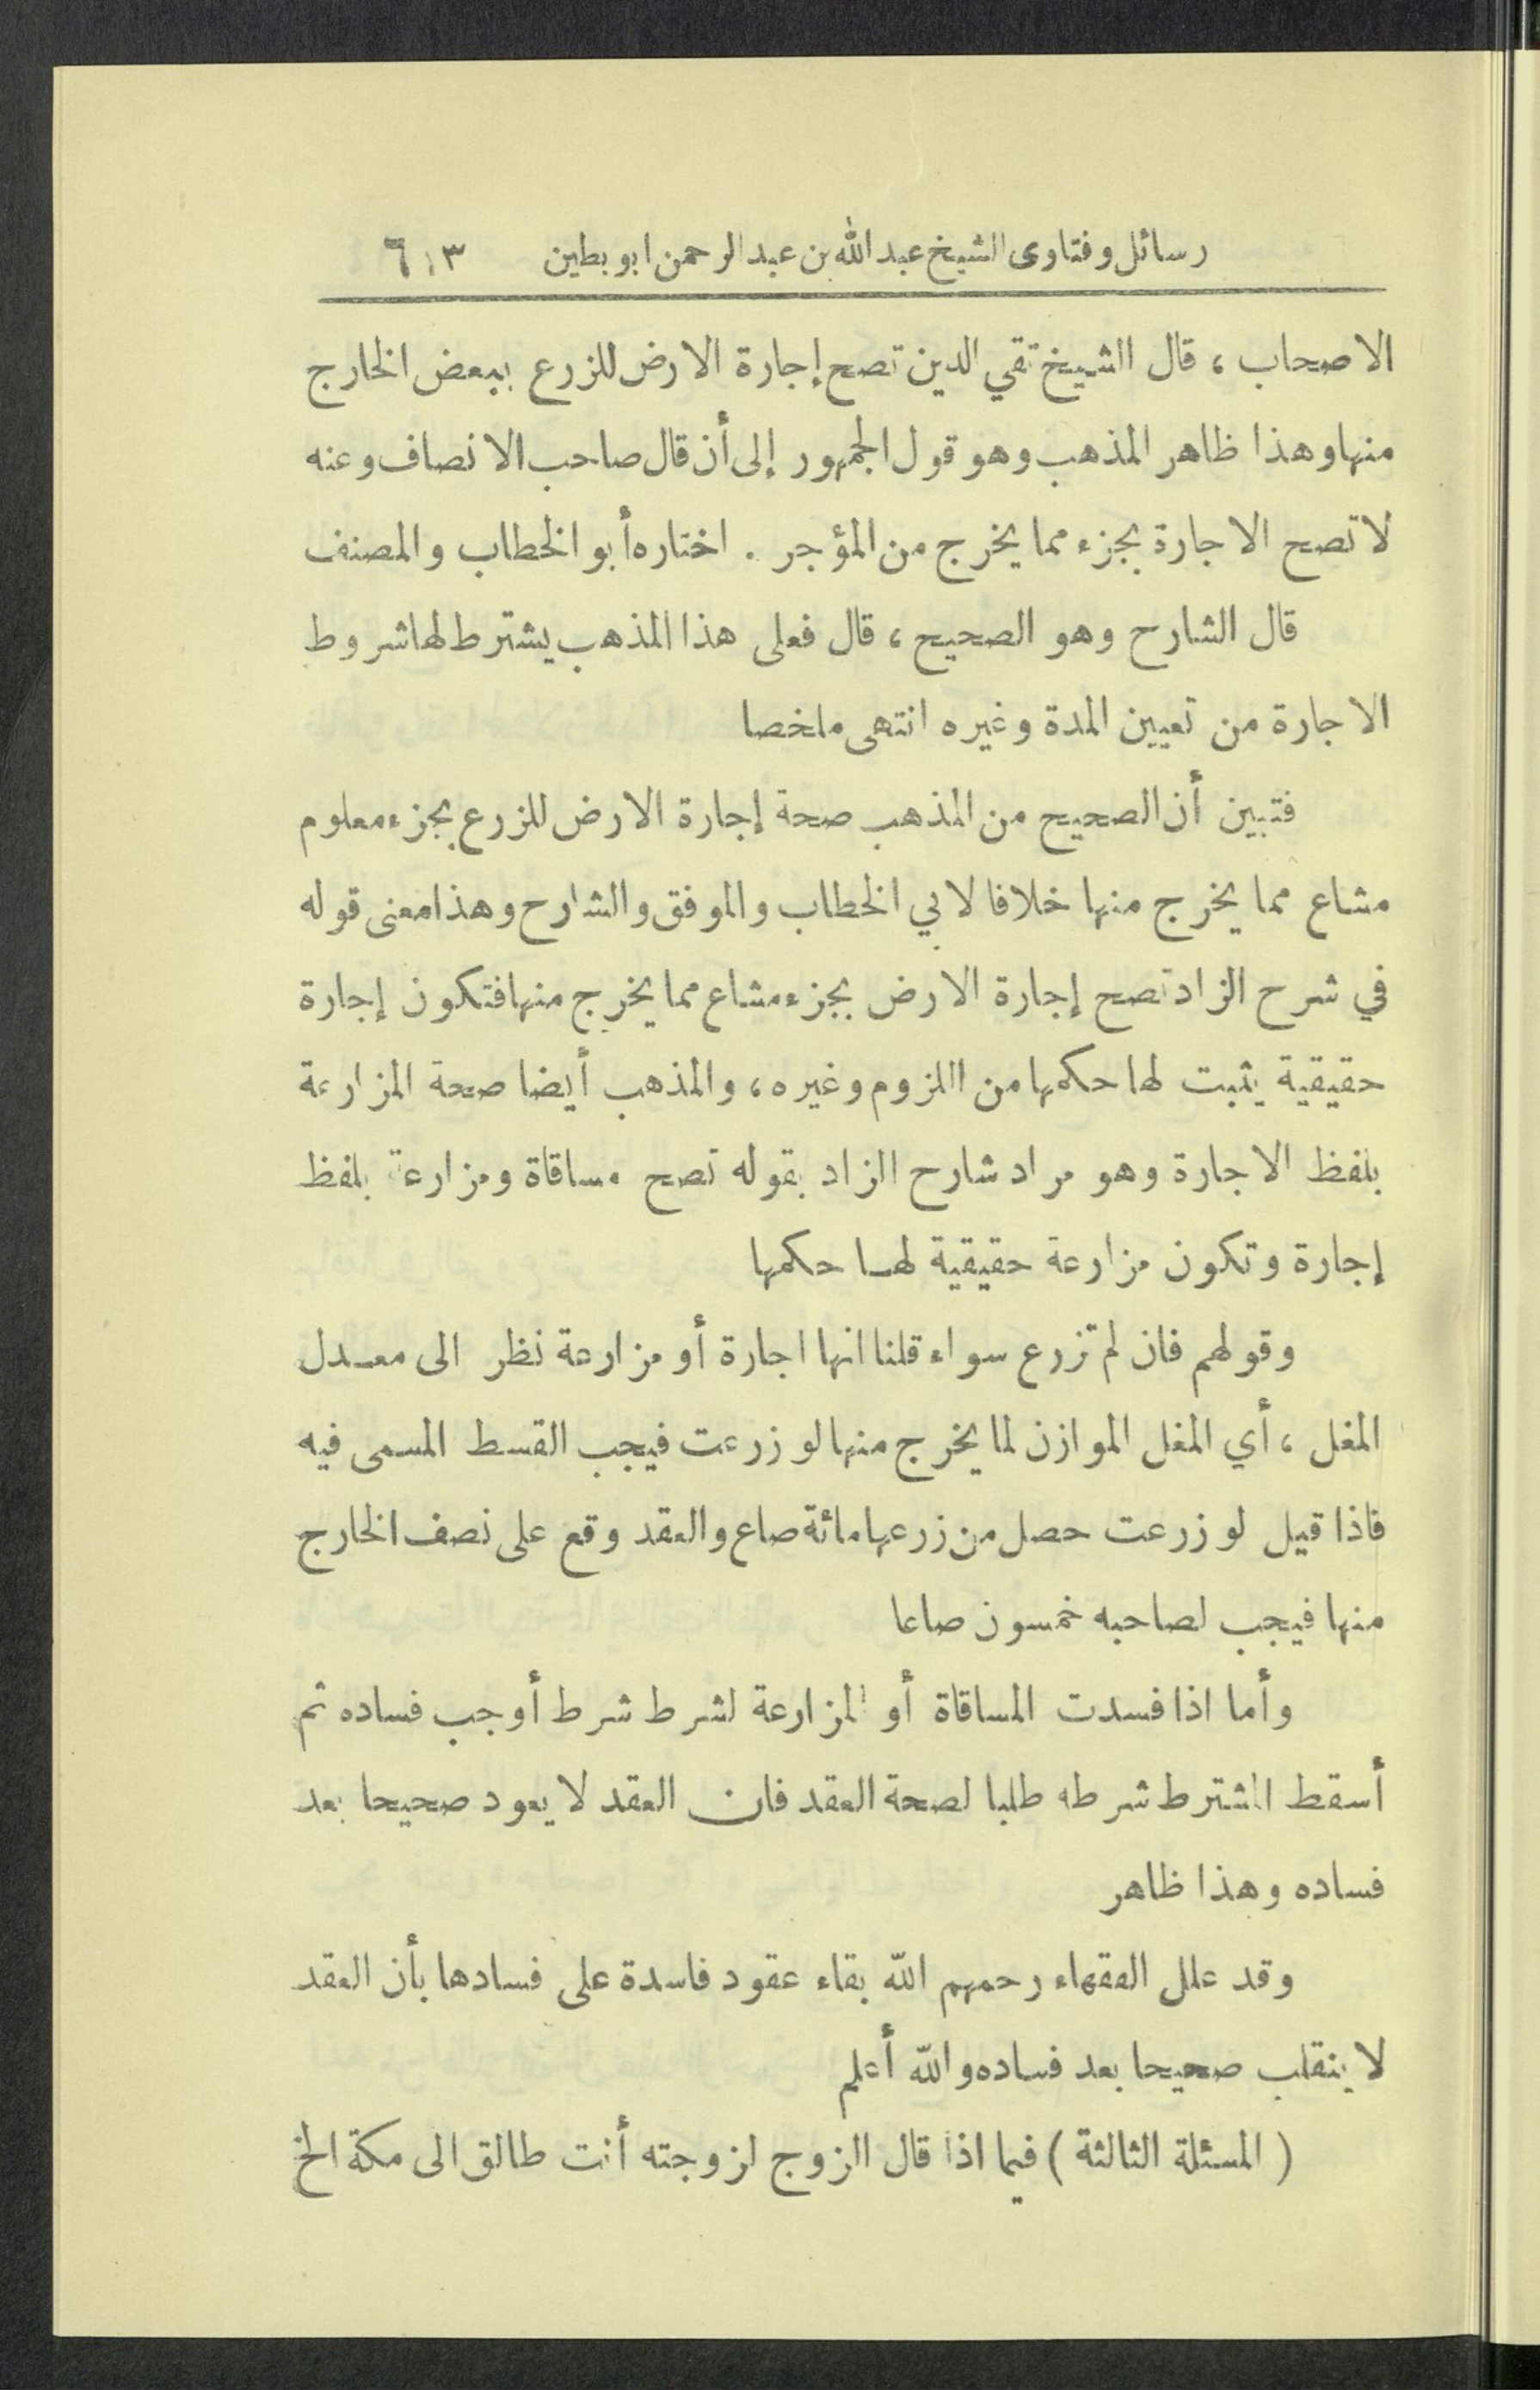 رسائل وفتاوى الشيخ عبد الله بن عبد الرحمن ابو بطين ٦١٣
الاصحاب ، قال الشيخ تقي الدين تصح إجارة الارض للزرع ببعض الخارج
منها وهذا ظاهر المذهب وهو قول الجمهور إلى أن قال صاحب الانصاف وعنه
لا تصح الاجارة بجزء مما يخرج من المؤجر . اختاره أبو الخطاب والمصنف
قال الشارح وهو الصحيح ، قال فعلى هذا المذهب يشترط لها شروط
الاجارة من تعيين المدة وغيره انتهى ملخصا
فتبين أن الصحيح من المذهب صحة إجارة الارض للزرع بجزء معلوم
مشاع مما يخرج منها خلافا لابي الخطاب والموفق والشارح وهذا معنى قوله
في شرح الزاد تصح إجارة الارض بجزء مشاع مما يخرج منها فتكون إجارة
حقيقية يثبت لها حكمها من اللزوم وغيره ، والمذهب أيضا صحة المزارعة
بلفظ الاجارة وهو مراد شارح الزاد بقوله تصح مساقاة ومزارعة بلفظ
إجارة وتكون مزارعة حقيقية لها حكمها
وقولهم فان لم تزرع سواء قلنا انها اجارة أو مزارعة نظر الى معدل
المغل ، أي المغل الموازن لما يخرج منها لو زرعت فيجب القسط المسمى فيه
فاذا قيل لو زرعت حصل من زرعها مائة صاع والعقد وقع على نصف الخارج
منها فيجب لصاحبه خمسون صاعا
وأما اذا فسدت المساقاة أو المزارعة لشرط شرط أوجب فساده ثم
أسقط المشترط شرطه طلبا لصحة العقد فان العقد لا يعود صحيحا بعد
فساده وهذا ظاهر
وقد علل الفقهاء رحمهم الله بقاء عقود فاسدة على فسادها بأن العقد
لا ينقلب صحيحا بعد فساده والله أعلم
( المسئلة الثالثة ) فيما اذا قال الزوج لزوجته أنت طالق الى مكة الخ